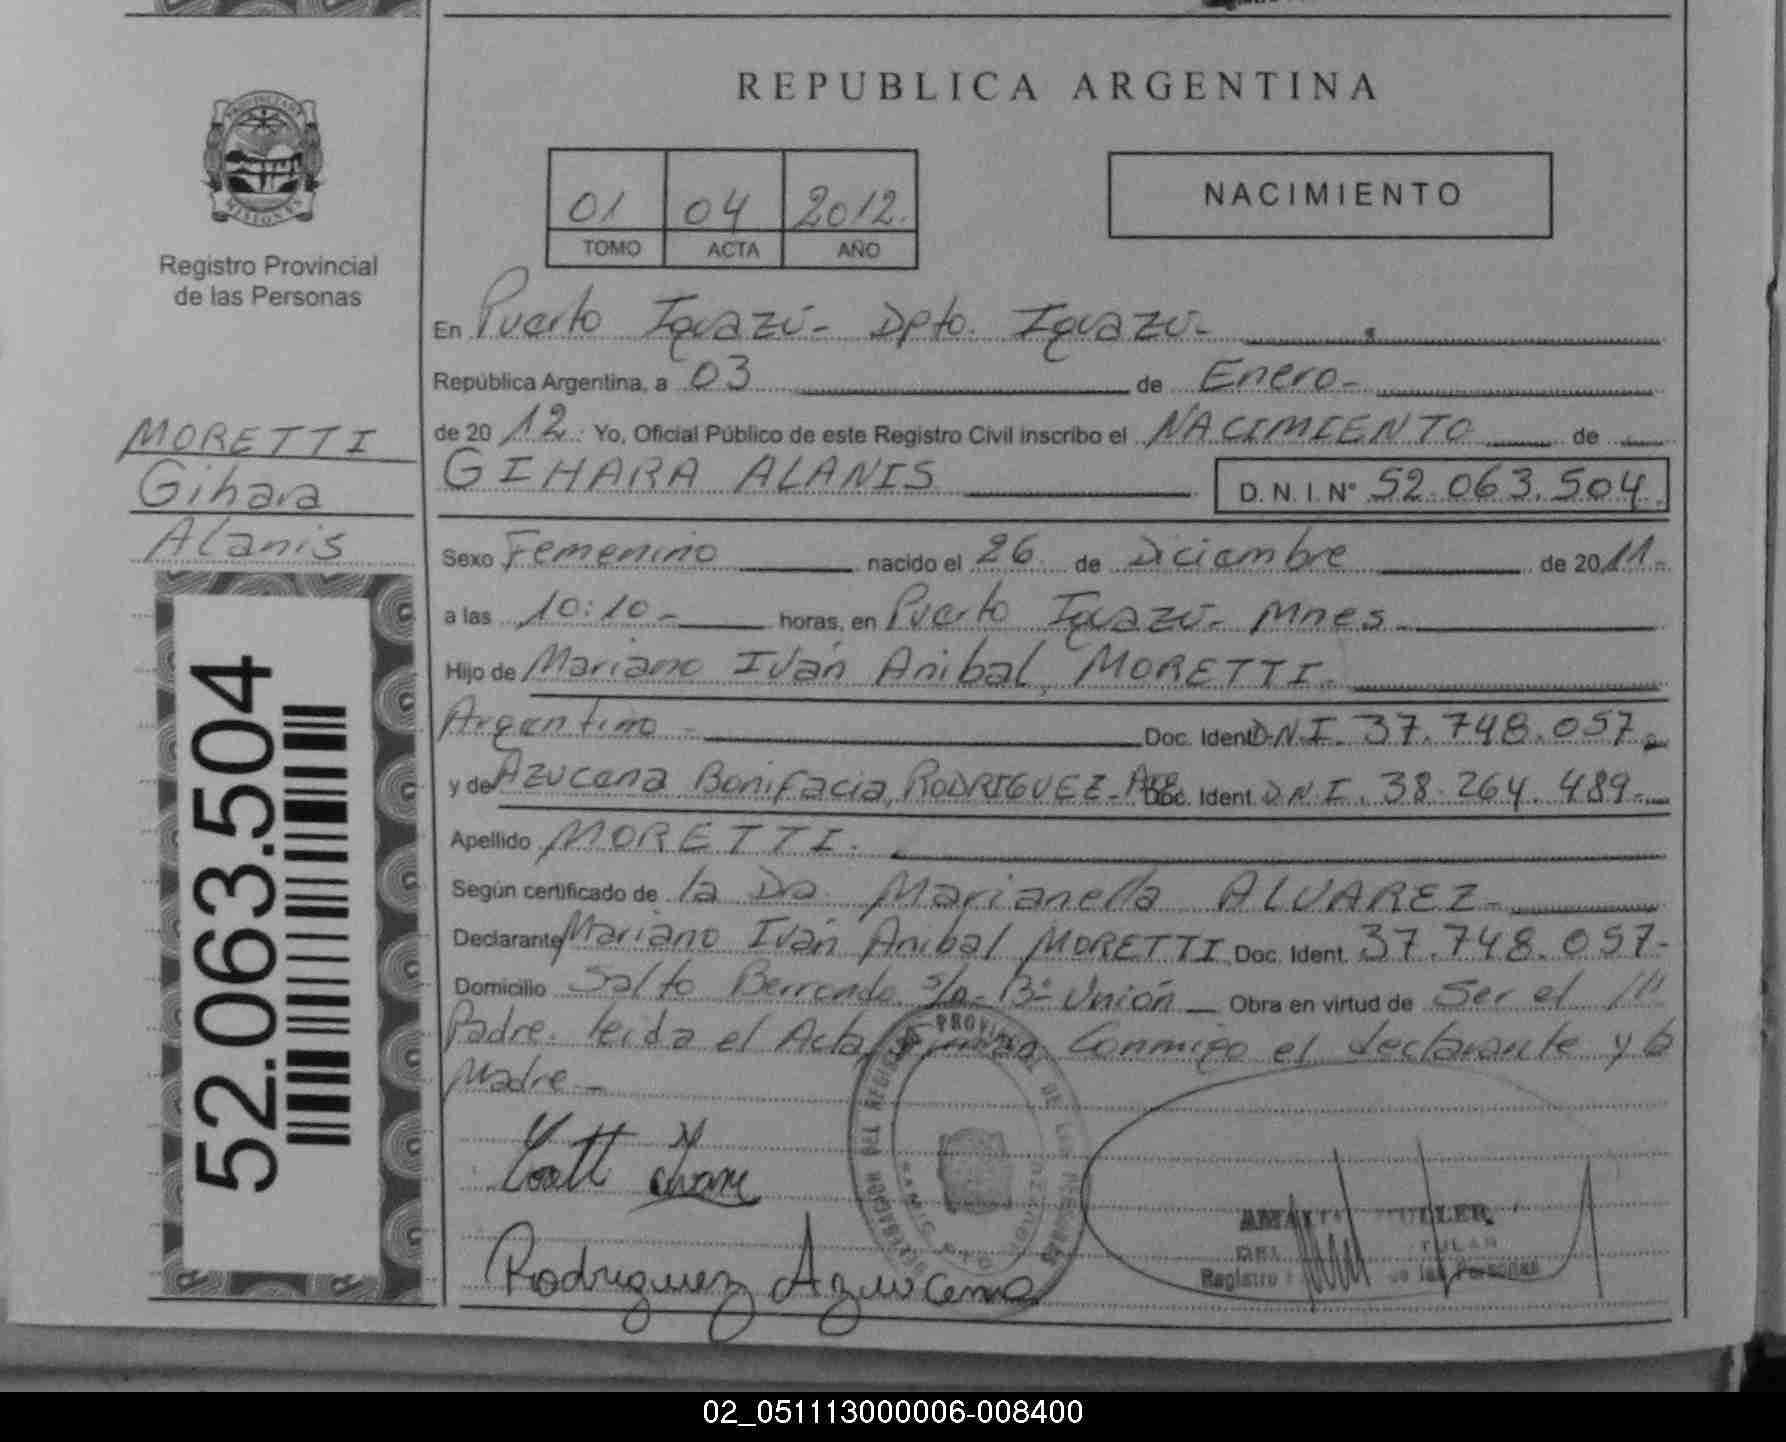 REPUBLICA ARGENTINA
PROVINCIA DE
MISIONES
Registro Provincial
de las Personas
01 04 2012.
TOMO ACTA AÑO
NACIMIENTO
En Puerto Iguazú- Dpto. Iguazú-
República Argentina, a 03 de Enero-
de 20 12. Yo, Oficial Público de este Registro Civil inscribo el NACIMIENTO de
GIHARA ALANIS D.N.I. Nº 52.063.504.
MORETTI
Gihara
Alanis
52.063.504
Sexo Femenino nacido el 26 de Diciembre de 2011.-
a las 10:10- horas, en Puerto Iguazú- Mnes.
Hijo de Mariano Iván Anibal, MORETTI.-
Argentino- Doc. Ident. D.N.I. 37.748.057.
y de Azucena Bonifacia, RODRIGUEZ- Arg. Doc. Ident. D.N.I. 38.264.489-
Apellido MORETTI.
Según certificado de la Dra. Marianella ALVAREZ-
Declarante Mariano Iván Anibal MORETTI Doc. Ident. 37.748.057-
Domicilio Salto Berrondo s/n- Bº Unión Obra en virtud de Ser el
Padre. leida el Acta, Conmigo el declarante y la
Madre-
Rodriguez Azucena
MULLER
TULAR
Registro de las Personas
02_051113000006-008400